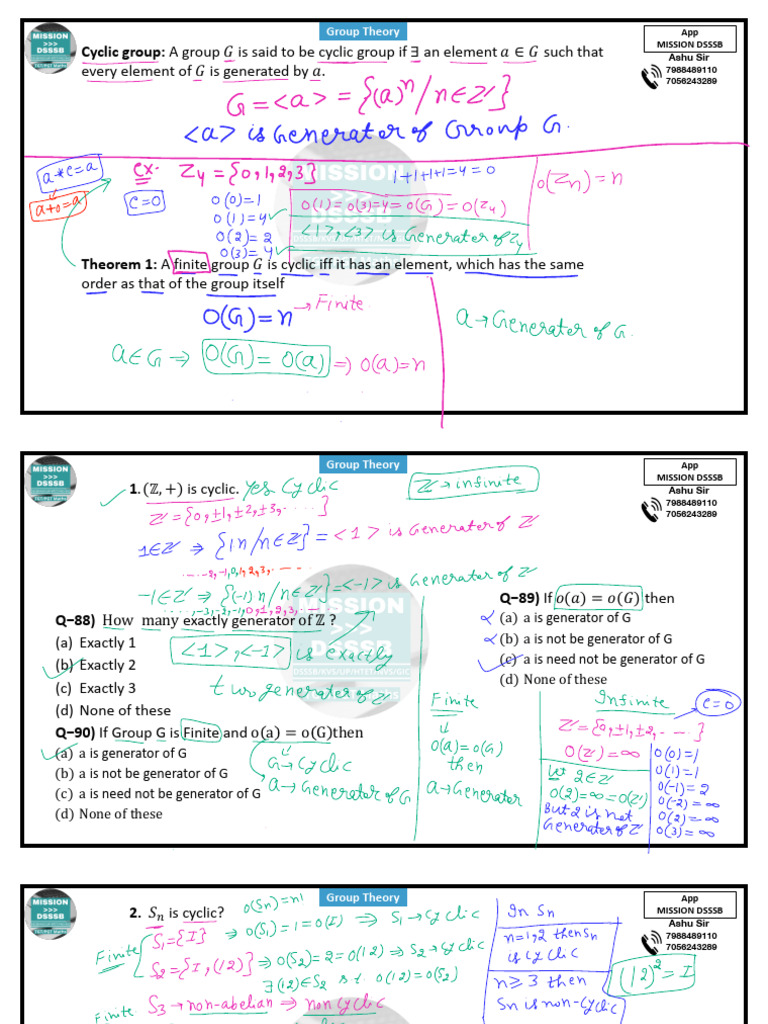 MISSION
>>>
DSSSB
Group Theory
App
MISSION DSSSB
Ashu Sir
7988489110
7056243289
Cyclic group: A group G is said to be cyclic group if ∃ an element a ∈ G such that
every element of G is generated by a.
G = <a> = {(a)ⁿ / n∈Z}
<a> is Generator of Group G.
a*e=a
a+0=a
Ex- Z₄ = {0,1,2,3}
1+1+1+1=4=0
O(Zn) = n
e=0
O(0)=1
O(1)=4
O(2)=2
O(3)=4
O(1)=O(3)=4=O(G)=O(Z₄)
<1>,<3> is Generator of Z₄
Theorem 1: A finite group G is cyclic iff it has an element, which has the same
order as that of the group itself
O(G)=n → Finite
a∈G ⇒ O(G) = O(a) ⇒ O(a)=n
a → Generator of G.
MISSION
>>>
DSSSB
Group Theory
App
MISSION DSSSB
Ashu Sir
7988489110
7056243289
1. (ℤ, +) is cyclic. Yes Cyclic
Z → infinite
Z = {0,±1,±2,±3,.....}
1∈Z ⇒ {1n/n∈Z} = <1> is Generator of Z
....-2,-1,0,1,2,3,....
-1∈Z ⇒ {(-1)n/n∈Z} = <-1> is Generator of Z
....,-3,-2,-1,0,1,2,3,....
Q−88) How many exactly generator of ℤ ?
(a) Exactly 1
(b) Exactly 2
(c) Exactly 3
(d) None of these
<1>,<-1> is exactly
two generator of Z
Q−89) If o(a) = o(G) then
(a) a is generator of G
(b) a is not be generator of G
(c) a is need not be generator of G
(d) None of these
Q−90) If Group G is Finite and o(a) = o(G)then
(a) a is generator of G
(b) a is not be generator of G
(c) a is need not be generator of G
(d) None of these
G → Cyclic
a → Generator of G
Finite
O(a)=O(G)
then
a → Generator
Infinite
e=0
Z = {0,±1,±2,....}
O(Z) = ∞
let 2∈Z
O(2)=∞=O(Z)
But 2 is not
Generator of Z
O(0)=1
O(1)=1
O(-1)=2
O(-2)=∞
O(2)=∞
O(3)=∞
MISSION
>>>
DSSSB
Group Theory
App
MISSION DSSSB
Ashu Sir
7988489110
7056243289
2. Sₙ is cyclic?
O(Sn)=n!
Finite
S₁={I} ⇒ O(S₁)=1=O(I) ⇒ S₁→Cyclic
S₂={I,(12)} ⇒ O(S₂)=2=O(12) ⇒ S₂→Cyclic
∃(12)∈S₂ s.t O(12)=O(S₂)
Finite
S₃ → non-abelian ⇒ non cyclic
In Sn
n=1,2 then Sn
is Cyclic
n≥3 then
Sn is non-Cyclic
(12)²=I